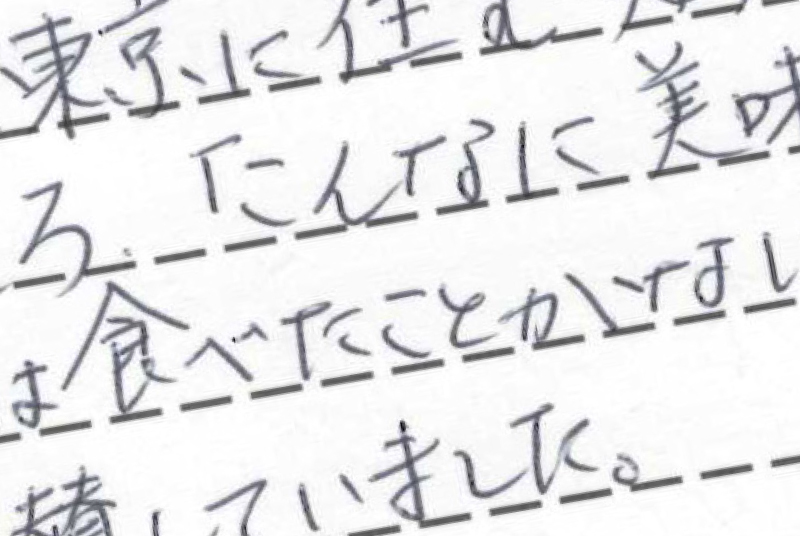 東京に住む
ろ、「こんなに美味
は食べたことがなし
賛していました。